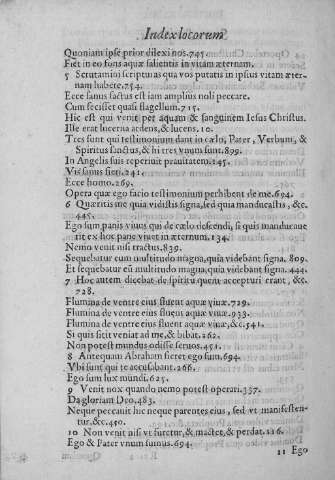 Index locorum
Quoniam ipse prior dilexi nos.745.
Fiet in eo fons aquæ salientis in vitam æternam.
5 Scrutamini scripturas qua vos putatis in ipsius vitam æter-
nam habere.754.
Ecce sanus factus est iam amplius noli peccare.
Cum fecisset quasi flagellum.715.
Hic est qui venit per aquam & sanguinem Iesus Christus.
Ille erat lucerna ardens, & lucens.10.
Tres sunt qui testimonium dant in cælo, Pater, Verbum, &
Spiritus sanctus, & hi tres vnum sunt.899.
In Angelis suis reperiuit prauitatem.145.
Vis sanus fieri.241.
Ecce homo.269.
Opera quæ ego facio testimonium perhibent de me.694.
6 Quæritis me quia vidistis signa, sed quia manducastis, &c.
445.
Ego sum panis viuus qui de cælo descendi, si quis manducaue
rit ex hoc pane viuet in æternum.134.
Nemo venit nisi tractus.839.
Sequebatur eum multitudo magna, quia videbant signa. 809.
Et sequebatur eũ multitudo magna, quia videbant signa.444.
7 Hoc autem dicebat de spiritu quem accepturi erant, &c.
728.
Flumina de ventre eius fluent aquæ viuæ.729.
Flumina de ventre eius fluent aquæ viuæ.933.
Flumina de ventre eius fluent aquæ viuæ, &c.541.
Si quis sitit veniat ad me, & bibat.262.
Non potest mundus odisse seruos.451.
8 Antequam Abraham fieret ego sum.694.
Vbi sunt qui te accusabant.266.
Ego sum lux mundi.625.
9 Venit nox quando nemo potest operari.357.
Da gloriam Deo.483.
Neque peccauit hic neque parentes eius, sed vt manifesten-
tur. &c.410.
10 Non venit nisi vt furetur, & mactet, & perdat.226.
Ego & Pater vnum sumus.694.
11 Ego